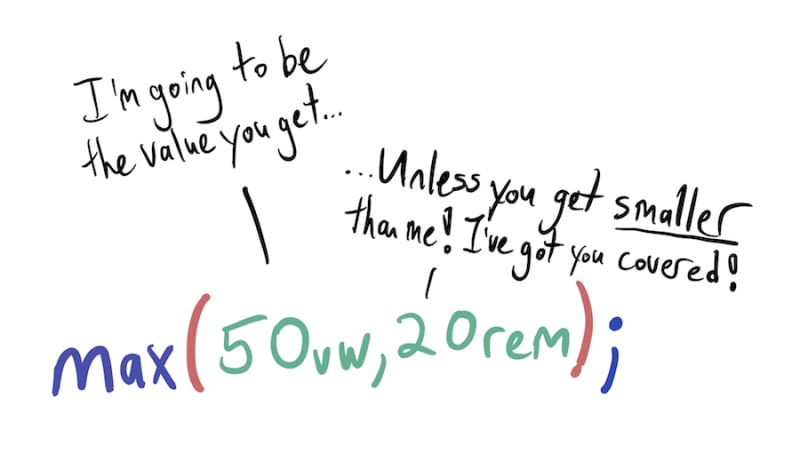 I'm going to be
the value you get...
...Unless you get smaller
than me! I've got you covered!
max(50vw,20rem);